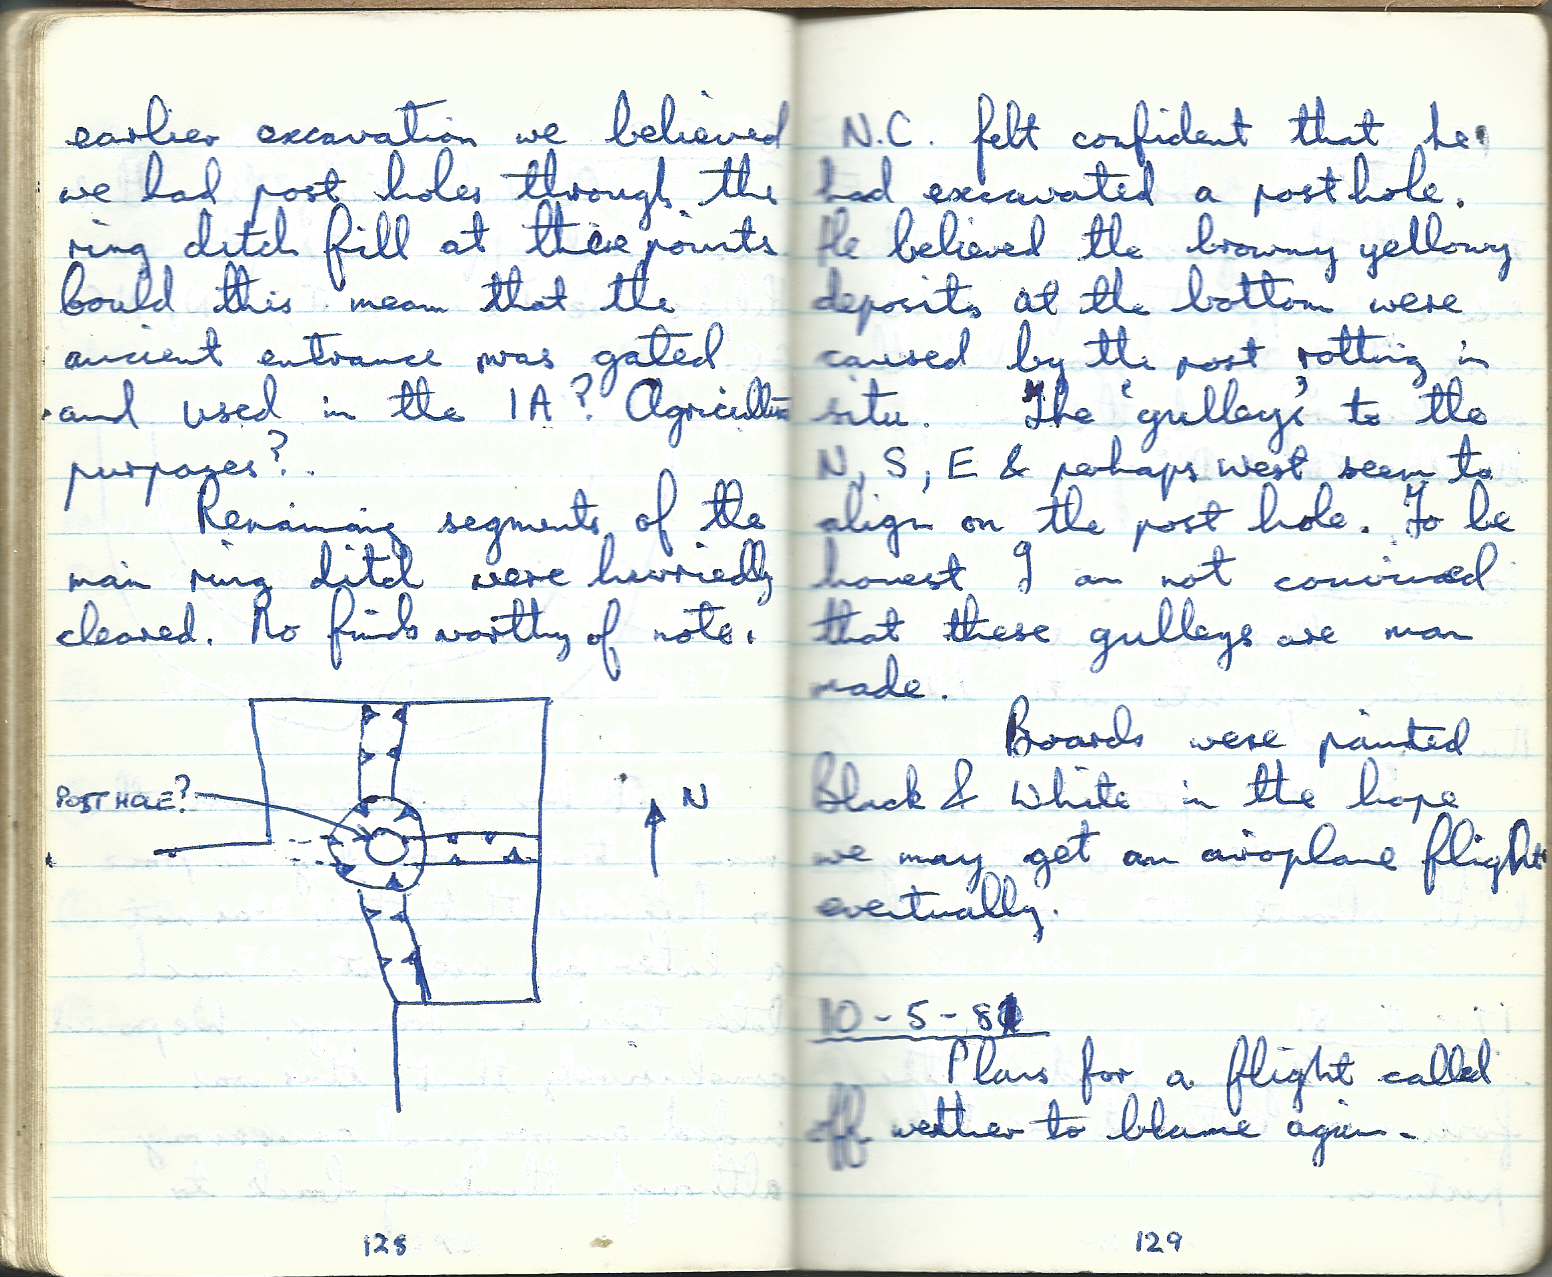 earlier excavation we believed
we had post holes through the
ring ditch fill at these points
Could this mean that the
ancient entrance was gated
and used in the IA? Agricultural
purposes?.
Remaining segments of the
main ring ditch were hurriedly
cleared. No finds worthy of note.
POST HOLE?
N
128
N.C. felt confident that he
had excavated a posthole.
He believed the browny yellowy
deposits at the bottom were
caused by the post rotting in
situ. The 'gulleys' to the
N, S, E & perhaps west seem to
align on the post hole. To be
honest I am not convinced
that these gulleys are man
made.
Boards were painted
Black & White in the hope
we may get an airoplane flight
eventually.
10-5-81
Plans for a flight called
off wether to blame again.
129